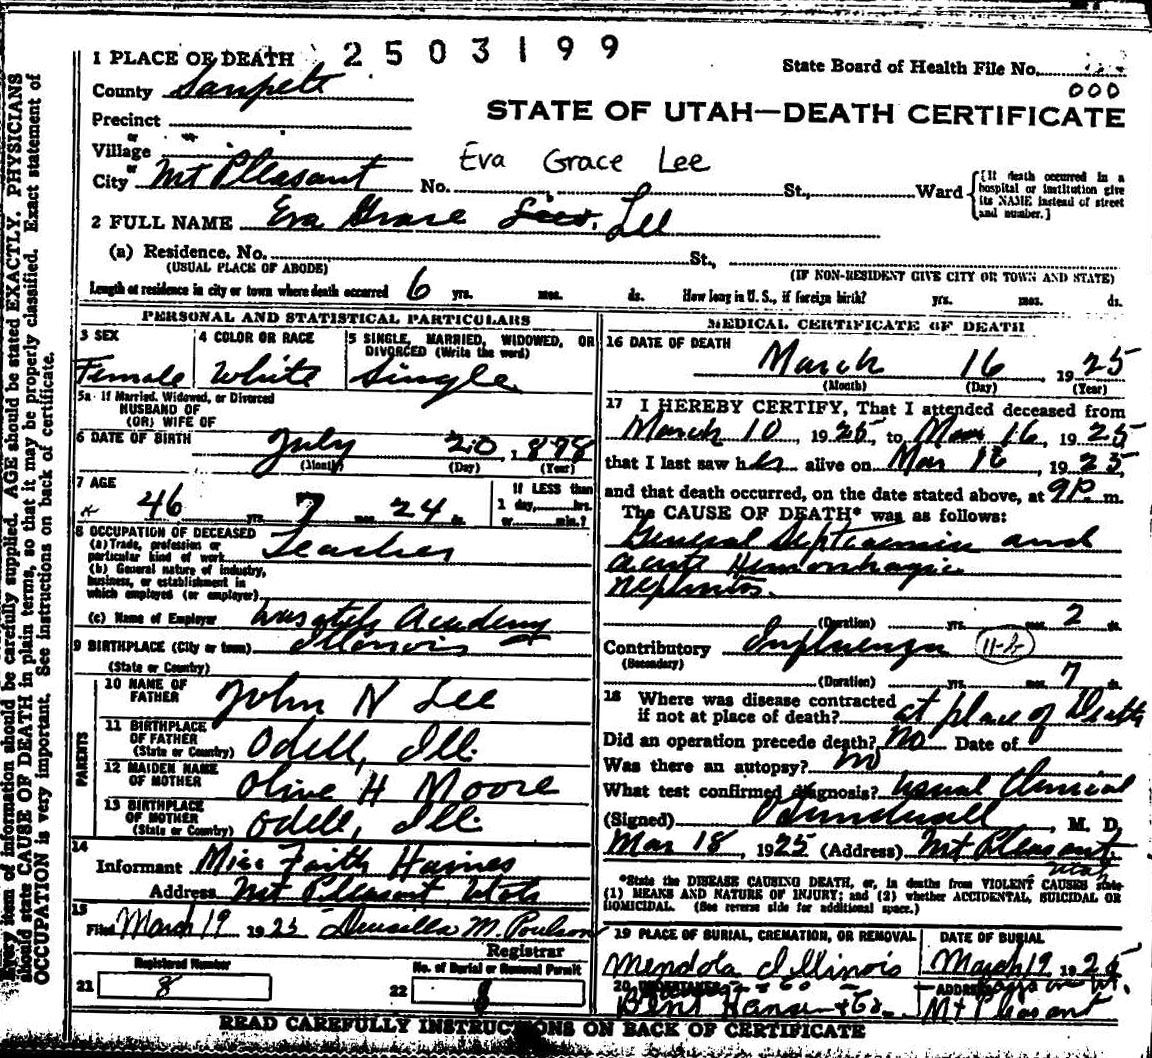 1 PLACE OF DEATH 2503199
State Board of Health File No.
000
County Sanpete
STATE OF UTAH—DEATH CERTIFICATE
Precinct
or
Village
or
City Mt Pleasant No. St., Ward
Eva Grace Lee
[If death occurred in a hospital or institution give its NAME instead of street and number.]
2 FULL NAME Eva Grace Lee
(a) Residence. No. St.,
(USUAL PLACE OF ABODE) (IF NON-RESIDENT GIVE CITY OR TOWN AND STATE)
Length of residence in city or town where death occurred 6 yrs. mos. ds. How long in U. S., if foreign birth? yrs. mos. ds.
PERSONAL AND STATISTICAL PARTICULARS
3 SEX
Female
4 COLOR OR RACE
White
5 SINGLE, MARRIED, WIDOWED, OR
DIVORCED (Write the word)
Single
5a If Married, Widowed, or Divorced
HUSBAND OF
(OR) WIFE OF
6 DATE OF BIRTH July 20 1878
(Month) (Day) (Year)
7 AGE
46 yrs. 7 mos. 24 ds.
If LESS than
1 day, hrs.
or min.?
8 OCCUPATION OF DECEASED
(a) Trade, profession or
particular kind of work Teacher
(b) General nature of industry,
business, or establishment in
which employed (or employer)
(c) Name of Employer Wasatch Academy
9 BIRTHPLACE (City or town) Illinois
(State or Country)
PARENTS
10 NAME OF
FATHER John N Lee
11 BIRTHPLACE
OF FATHER
(State or Country) Odell, Ill.
12 MAIDEN NAME
OF MOTHER Olive H Moore
13 BIRTHPLACE
OF MOTHER
(State or Country) Odell, Ill.
14
Informant Miss Faith Haines
Address Mt Pleasant Utah
15
Filed March 19 1925 Drusilla M. Poulson
Registrar
Registered Number
21 8
No. of Burial or Removal Permit
22 8
MEDICAL CERTIFICATE OF DEATH
16 DATE OF DEATH
March 16 1925
(Month) (Day) (Year)
17 I HEREBY CERTIFY, That I attended deceased from
March 10, 1925, to Mar 16, 1925
that I last saw her alive on Mar 16 1925,
and that death occurred, on the date stated above, at 9P. m.
The CAUSE OF DEATH* was as follows:
General Septicaemia and
acute Hemorrhagic
nephritis.
(Duration) yrs. mos. 2 ds.
Contributory Influenza 11-b
(Secondary)
(Duration) yrs. mos. 7 ds.
18 Where was disease contracted
if not at place of death? at place of Death
Did an operation precede death? No Date of
Was there an autopsy? no
What test confirmed diagnosis? usual Clinical
(Signed) M. D.
Mar 18, 1925 (Address) Mt Pleasant,
Utah
*State the DISEASE CAUSING DEATH, or, in deaths from VIOLENT CAUSES state
(1) MEANS AND NATURE OF INJURY; and (2) whether ACCIDENTAL, SUICIDAL OR
HOMICIDAL. (See reverse side for additional space.)
19 PLACE OF BURIAL, CREMATION, OR REMOVAL
Mendota Illinois
DATE OF BURIAL
March 19 1925
20 UNDERTAKER
Bent Hansen & Co.
ADDRESS
Mt Pleasant
READ CAREFULLY INSTRUCTIONS ON BACK OF CERTIFICATE
Every item of information should be carefully supplied. AGE should be stated EXACTLY. PHYSICIANS
should state CAUSE OF DEATH in plain terms, so that it may be properly classified. Exact statement of
OCCUPATION is very important. See instructions on back of certificate.